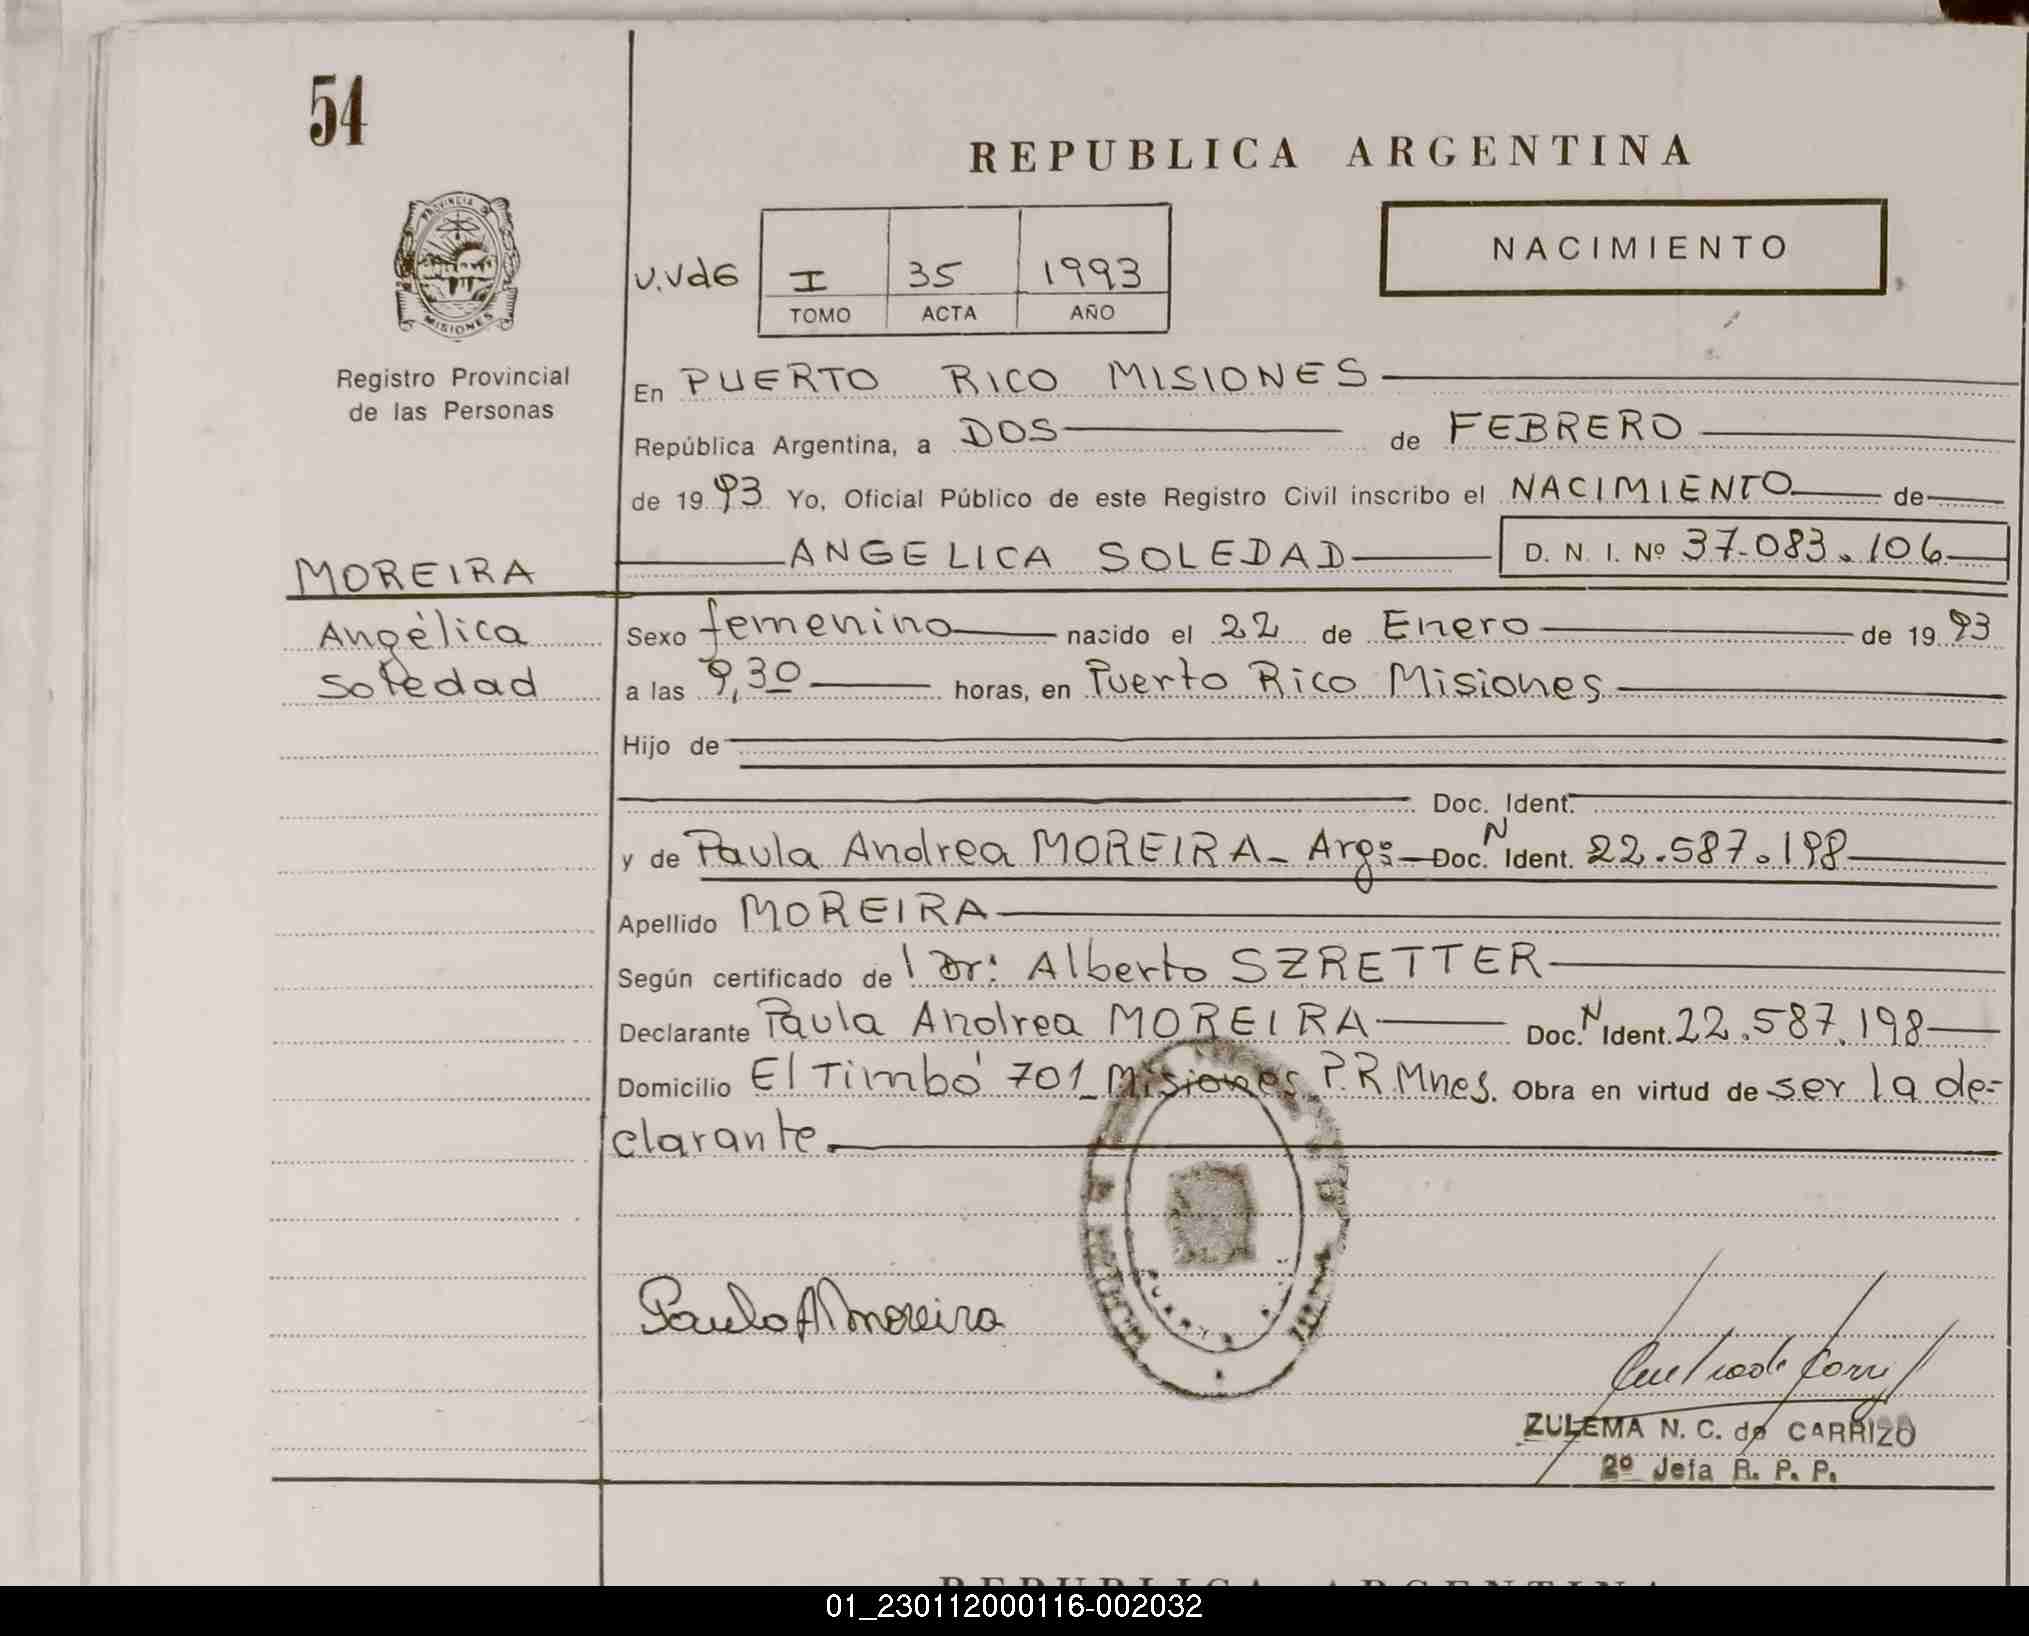 54
REPUBLICA ARGENTINA
PROVINCIA DE
MISIONES
Registro Provincial
de las Personas
NACIMIENTO
U.Vd6 I 35 1993
TOMO ACTA AÑO
En PUERTO RICO MISIONES
República Argentina, a DOS de FEBRERO
de 1993 Yo, Oficial Público de este Registro Civil inscribo el NACIMIENTO de
ANGELICA SOLEDAD D. N. I. Nº 37.083.106
MOREIRA
Angélica
Soledad
Sexo femenino nacido el 22 de Enero de 1993
a las 9,30 horas, en Puerto Rico Misiones
Hijo de
Doc. Ident.
y de Paula Andrea MOREIRA- Arg: Doc. N Ident. 22.587.198
Apellido MOREIRA
Según certificado de l Dr: Alberto SZRETTER
Declarante Paula Andrea MOREIRA Doc. N Ident. 22.587.198
Domicilio El Timbó 701_Misiones P.R.Mnes. Obra en virtud de ser la de-
clarante.
Paula A Moreira
ZULEMA N. C. de CARRIZO
2º Jefa R. P. P.
REPUBLICA ARGENTINA
01_230112000116-002032